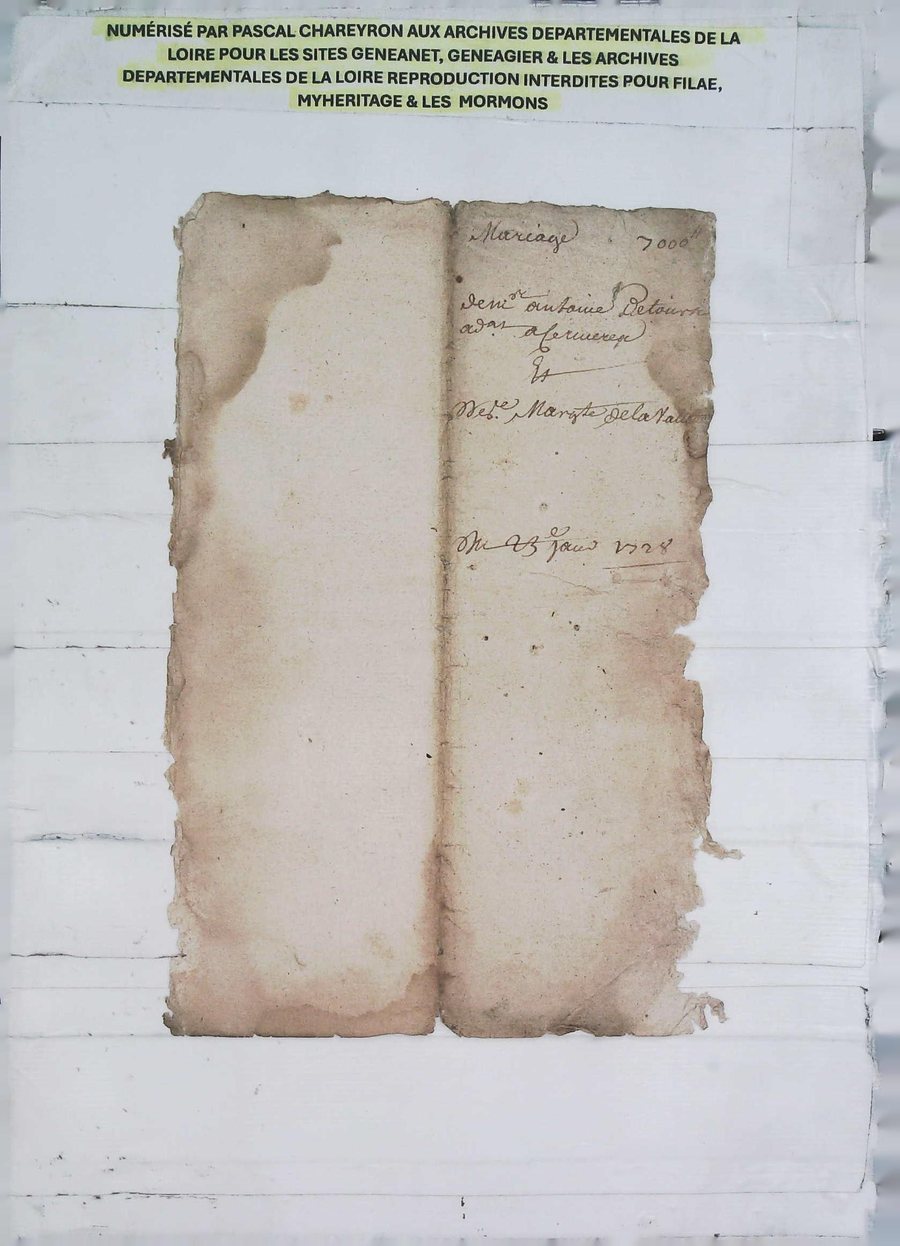 NUMÉRISÉ PAR PASCAL CHAREYRON AUX ARCHIVES DEPARTEMENTALES DE LA
LOIRE POUR LES SITES GENEANET, GENEAGIER & LES ARCHIVES
DEPARTEMENTALES DE LA LOIRE REPRODUCTION INTERDITES POUR FILAE,
MYHERITAGE & LES MORMONS
Mariage 7000
de mr antoine
adat a
Et
Margte dela
Du 23e janv 1728